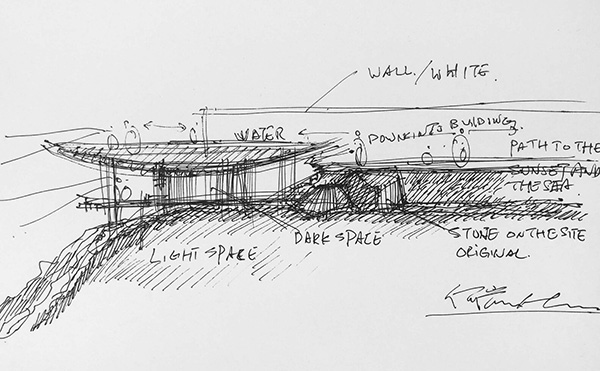 WALL/WHITE.
WATER
DOWN INTO BUILDING
PATH TO THE
SUNSET AND
THE SEA
LIGHT SPACE
DARK SPACE
STONE ON THE SITE
ORIGINAL.